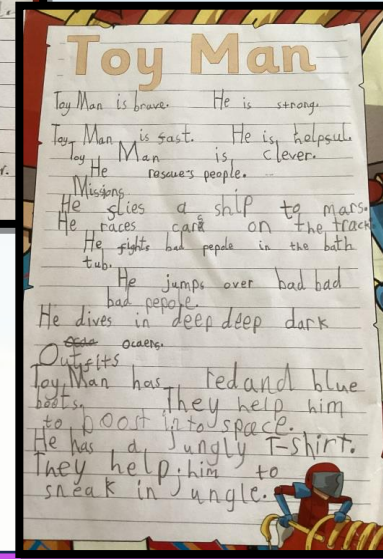 Toy Man
Toy Man is brave. He is strong.
Toy Man is fast. He is helpful.
Toy Man is clever.
He rascue's people.
Missions
He flies a ship to mars.
He races cars on the track
He fights bad pepole in the bath
tub.
He jumps over bad bad
bad pepole.
He dives in deep deep dark
ocaers.
Outfits
Toy Man has red and blue
boots. They help him
to boost into space.
He has a jungly T-shirt.
They help him to
sneak in jungle.